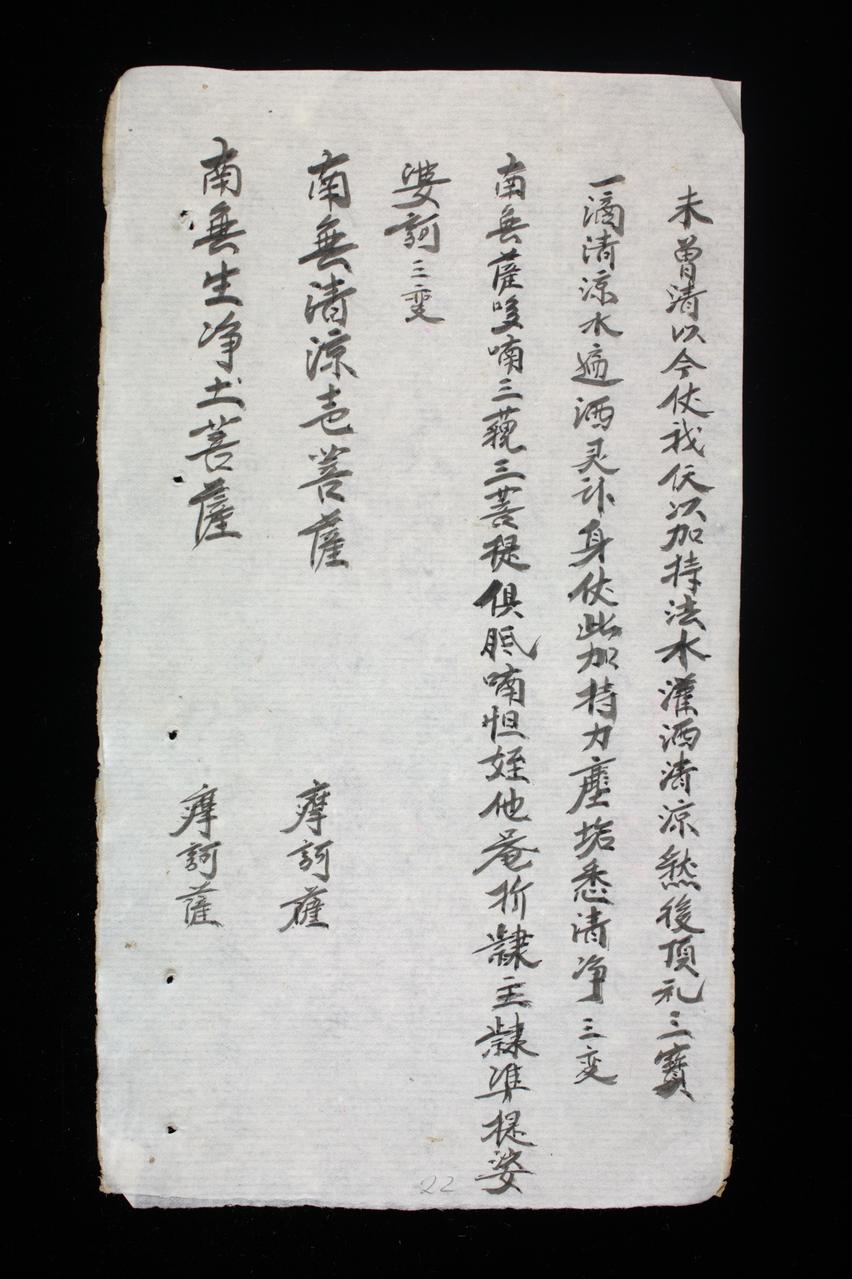 未曽清以今仗我仸以加持法水灌洒清凉然後頂礼三寳
一滴清凉水遍洒灵𧦬身仗此加持力塵垢悉清净三变
南無薩哆喃三藐三菩提俱胝喃怛姪他菴折隸主隸準提娑
婆訶三变
南無清凉壱菩薩 摩訶薩
南無生净土菩薩 摩訶薩
22